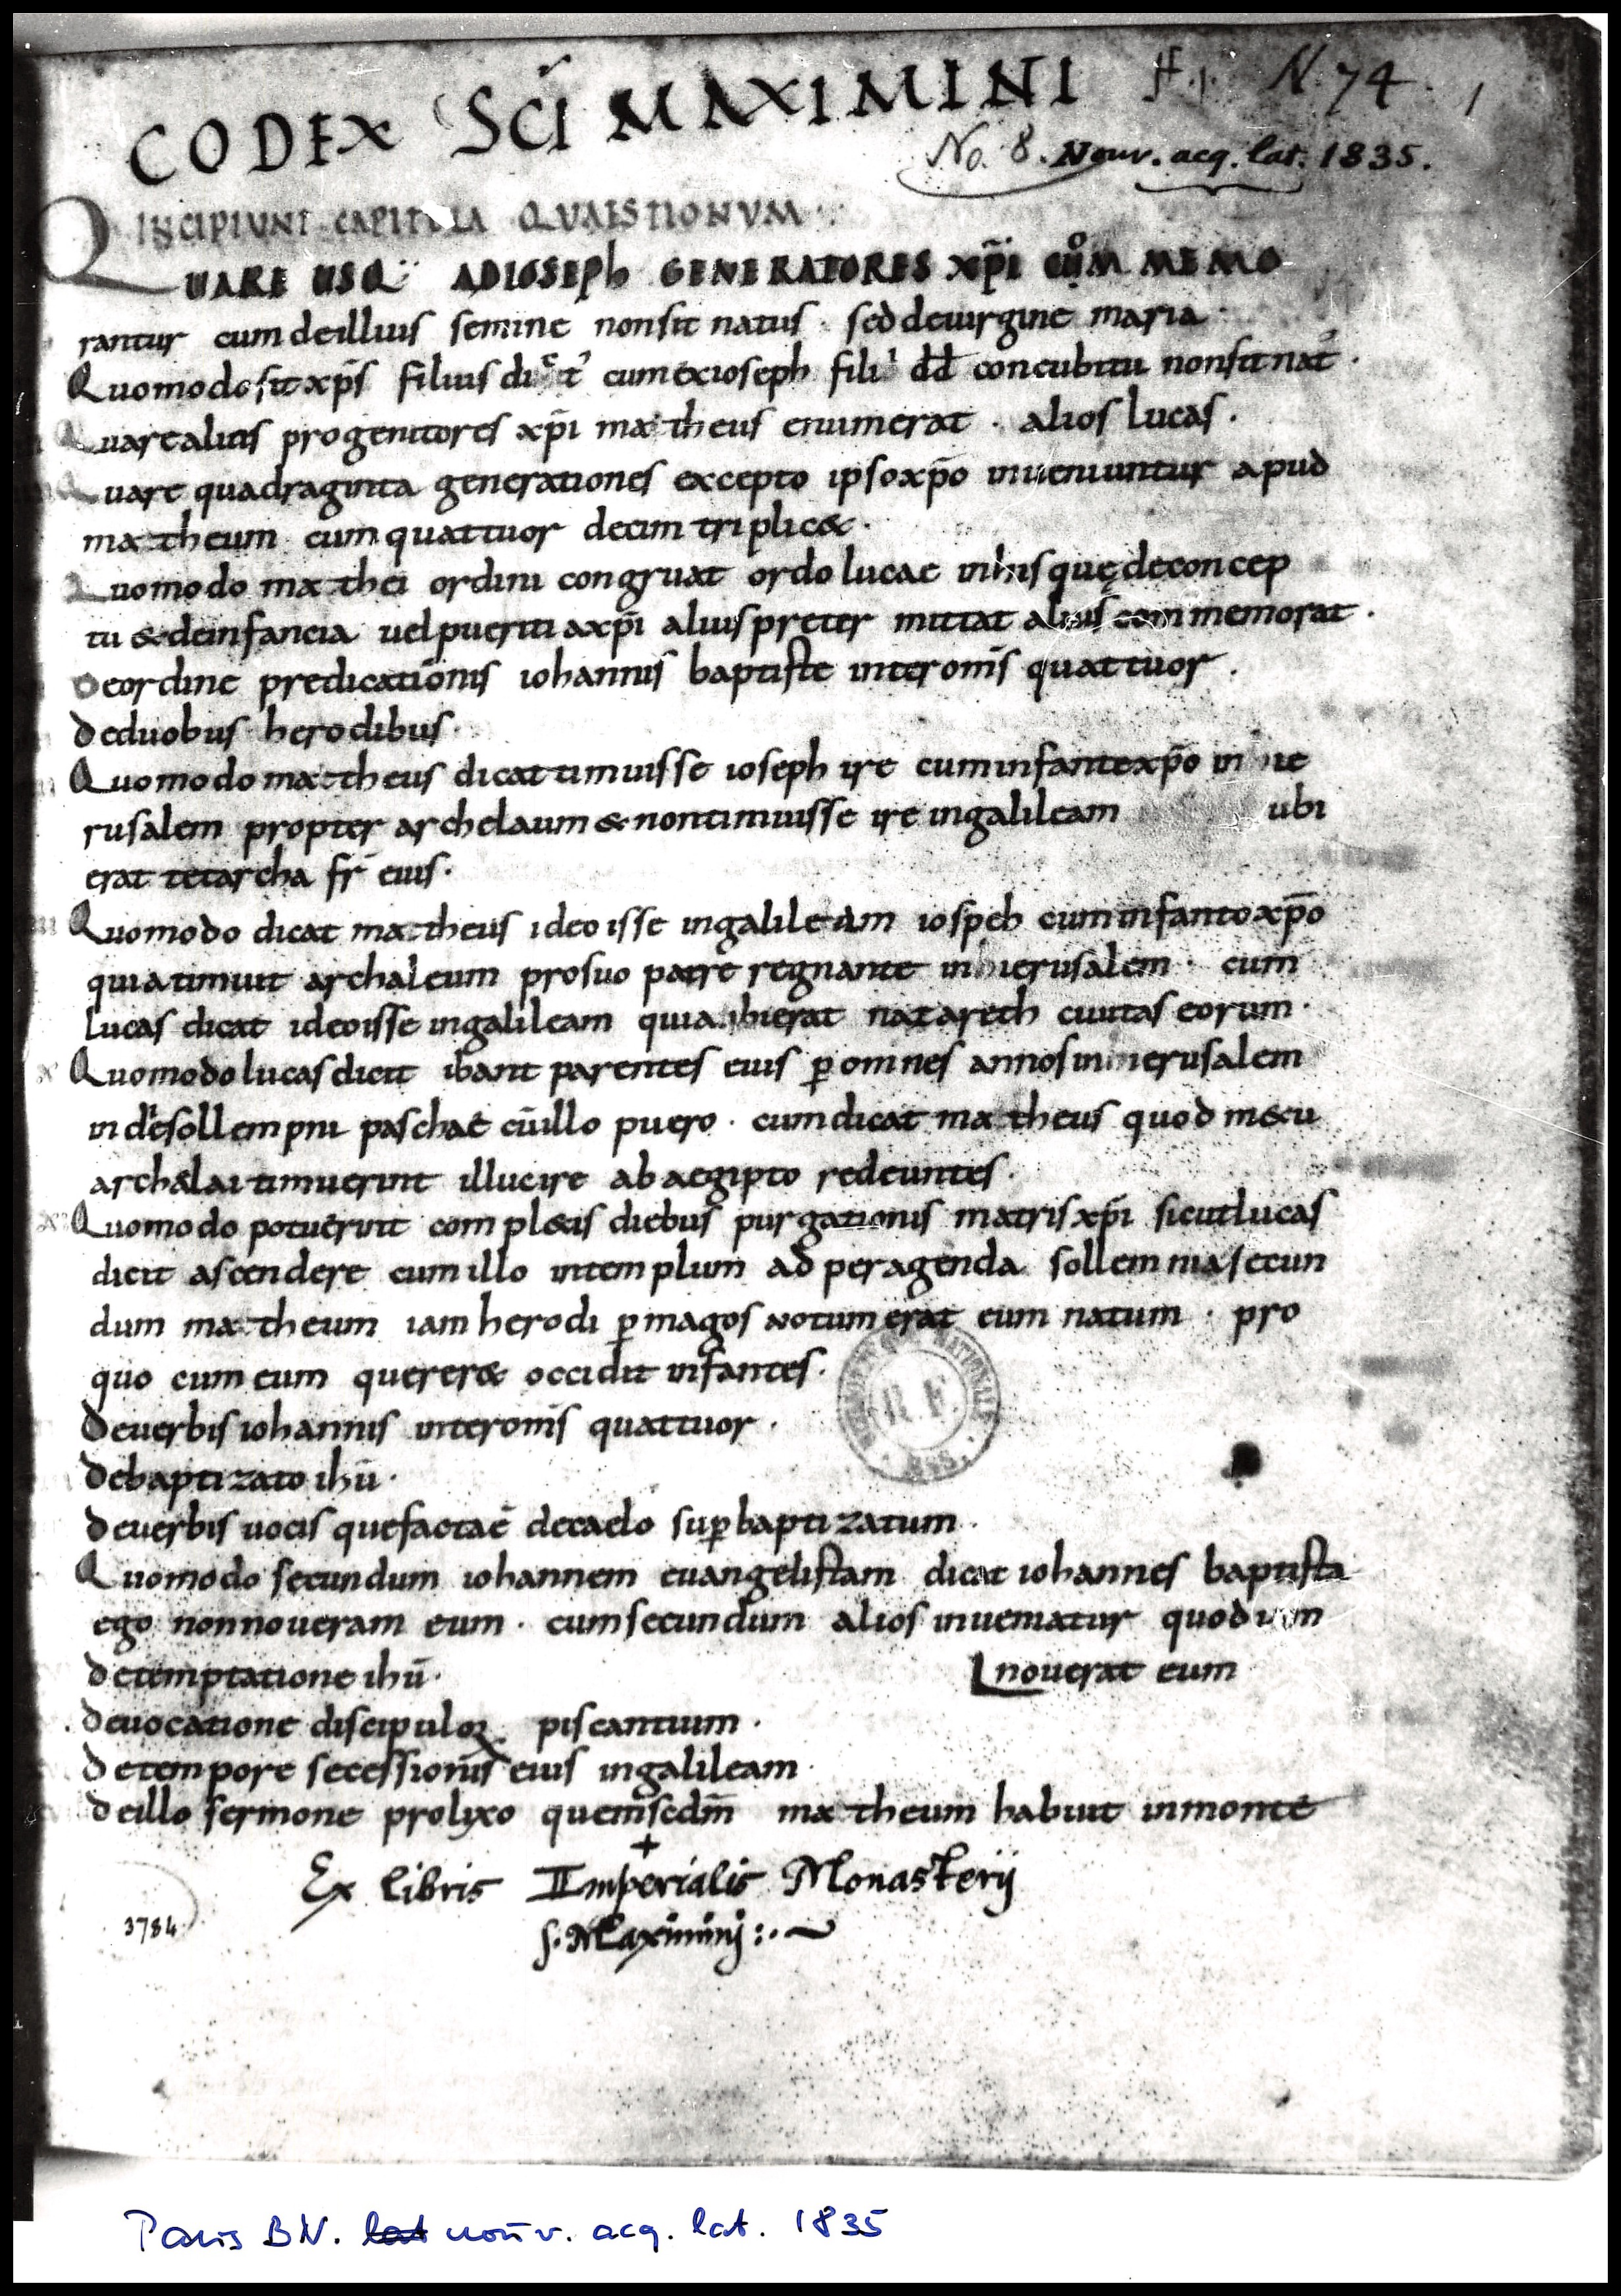 CODEX SC̄I MAXIMINI H.j. N. 74. 1
No. 8. Nouv. acq. lat. 1835.
INCIPIUNT CAPITULA QUAESTIONUM
QUARE USQ: ADIOSEPh GENERATORES XP̄I CŌM MEMO
rantur cum deillius semine nonsit natus · sed deuirgine maria ·
Quomodo sit xp̄s filius dicit' cum exioseph fili' dd concubitu nonsit nat' ·
Quare alius progenitores xp̄i matheus enumerat · alios lucas ·
Quare quadraginta generationes excepto ipso xp̄o inueniuntur apud
matheum cum quattuor decim triplic& ·
Quomodo mathei ordini congruat ordo lucae inhis quę deconcep
tu & deinfancia uel pueritia xp̄i alius preter mittat alius commemorat ·
De ordine predicationis iohannis baptiste inter om̄s quattuor ·
De duobus herodibus ·
Quomodo matheus dicat timuisse ioseph ire cum infante xp̄o in hie
rusalem propter archelaum & non timuisse ire in galileam ubi
erat tetarcha fr̄ eius ·
Quomodo dicat matheus ideo isse in galileam iospeh cum infanto xp̄o
quia timuit archaleum pro suo patre regnante in hierusalem · cum
lucas dicat ideo isse in galileam quia ibi erat nazareth ciuitas eorum ·
Quomodo lucas dicit ibant parentes eius ꝑ omnes annos in hierusalem
in die sollempni paschae cū illo puero · cum dicat matheus quod m&u
arch&lai timuerint illuc ire ab aegipto redeuntes ·
Quomodo potuerint compl&is diebus purgationis matris xp̄i sicut lucas
dicit ascendere cum illo in templum ad peragenda sollemnia secun
dum matheum iam herodi ꝑ magos notum erat eum natum · pro
quo cum eum querer& occidit infantes ·
De uerbis iohannis inter om̄s quattuor ·
De baptizato ihū ·
De uerbis uocis que facta ē de caelo suꝑ baptizatum ·
Quomodo secundum iohannem euangelistam dicat iohannes baptista
ego non noueram eum · cum secundum alios inueniatur quod iam
De temptatione ihū · nouerat eum
De uocatione discipuloꝝ piscantium ·
De tempore secessionis eius in galileam ·
De illo sermone prolyxo quem sedm̄ matheum habuit in monte
Ex libris Imperialis Monasterij
S. Maximinj :. ~
R. F.
3784
Paris BN. lat nouv. acq. lat. 1835